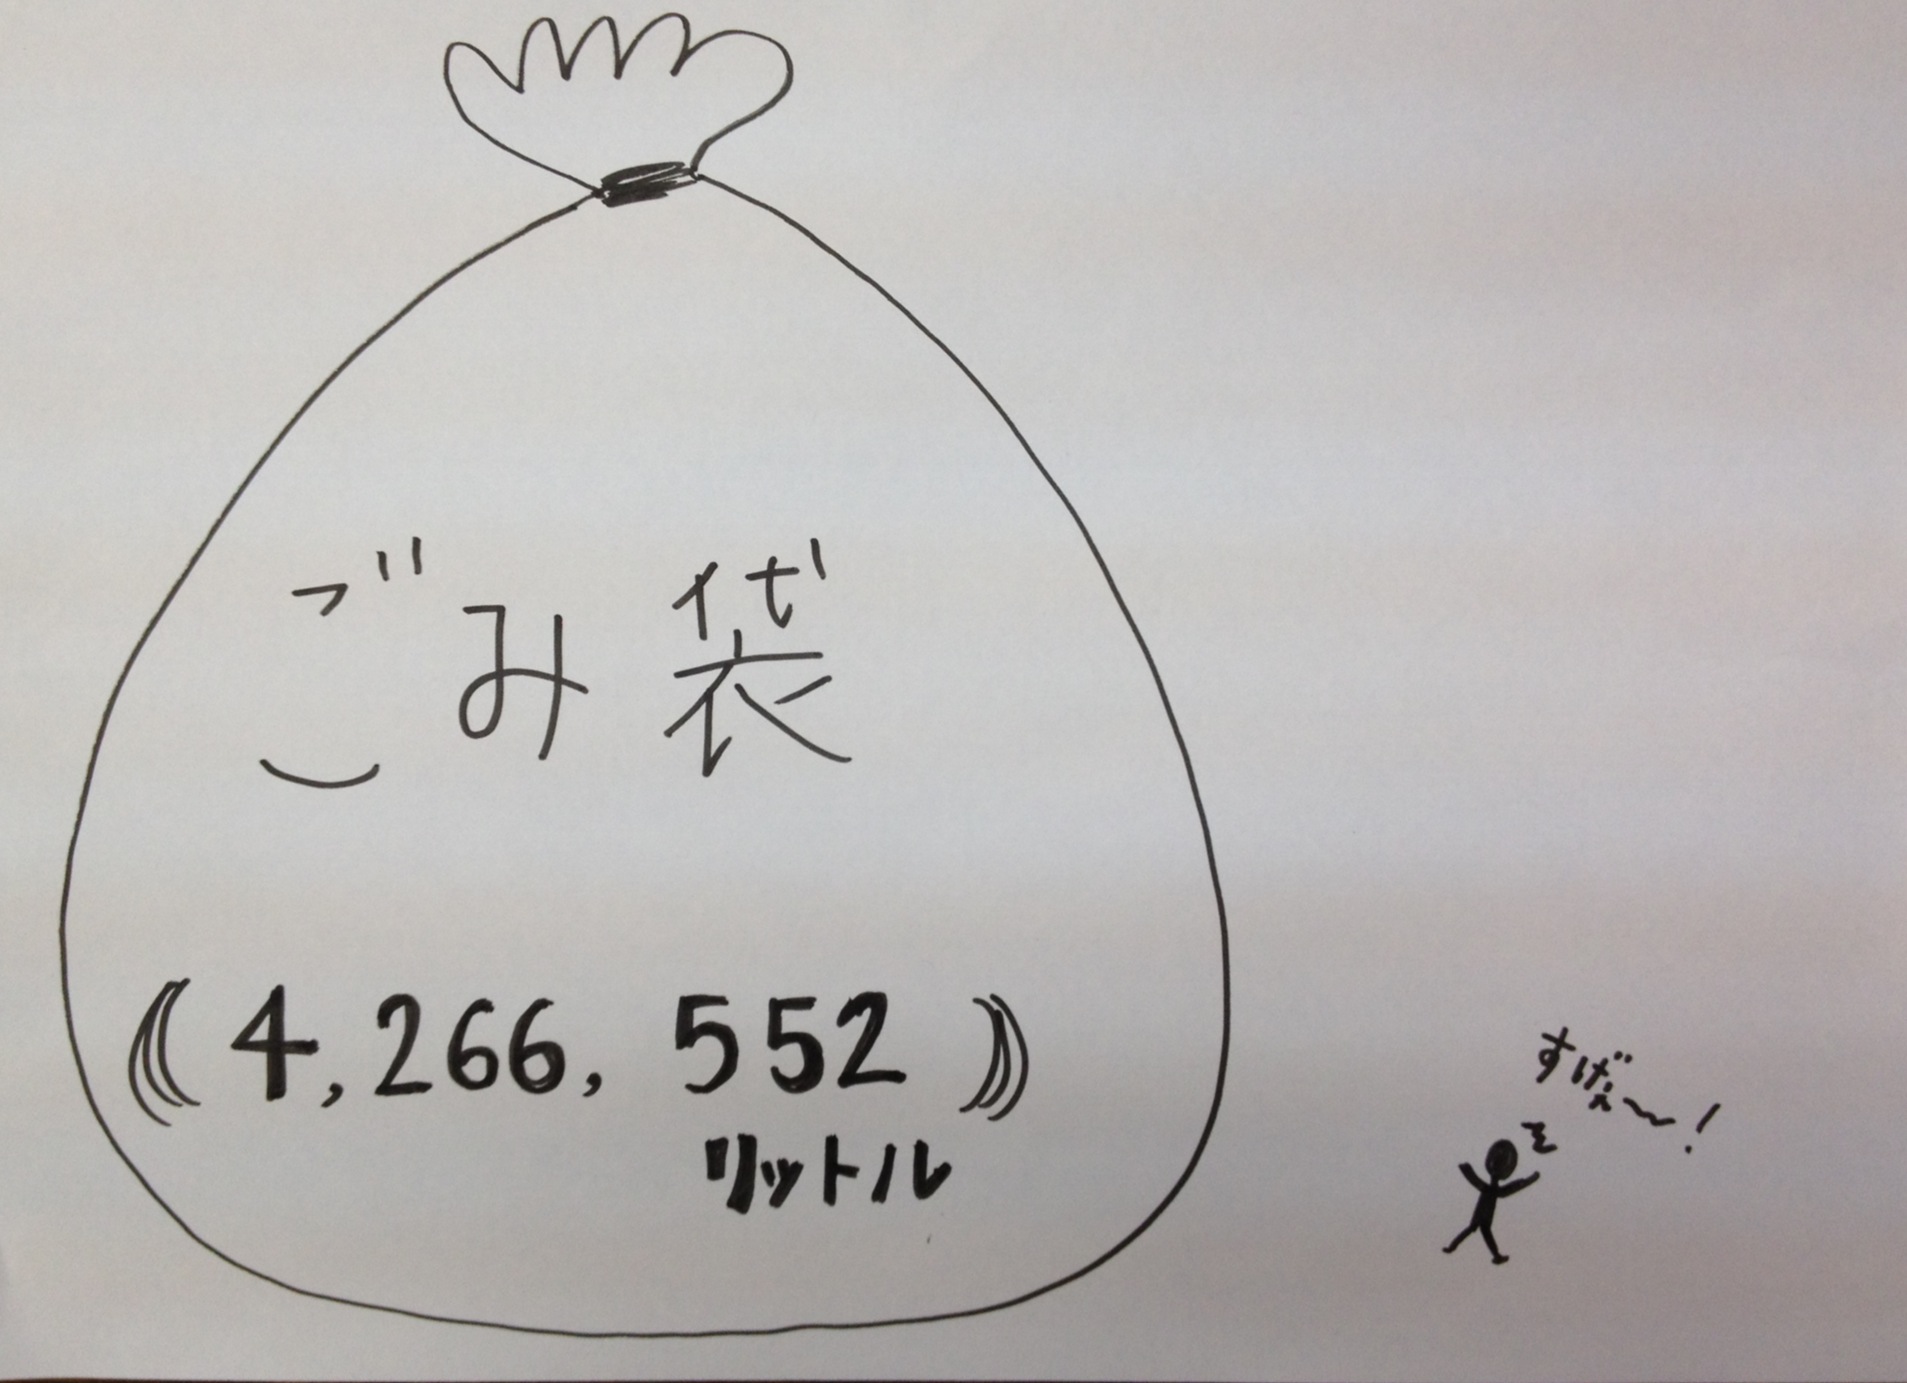 ごみ袋
(4,266,552)
リットル
すげぇ〜!